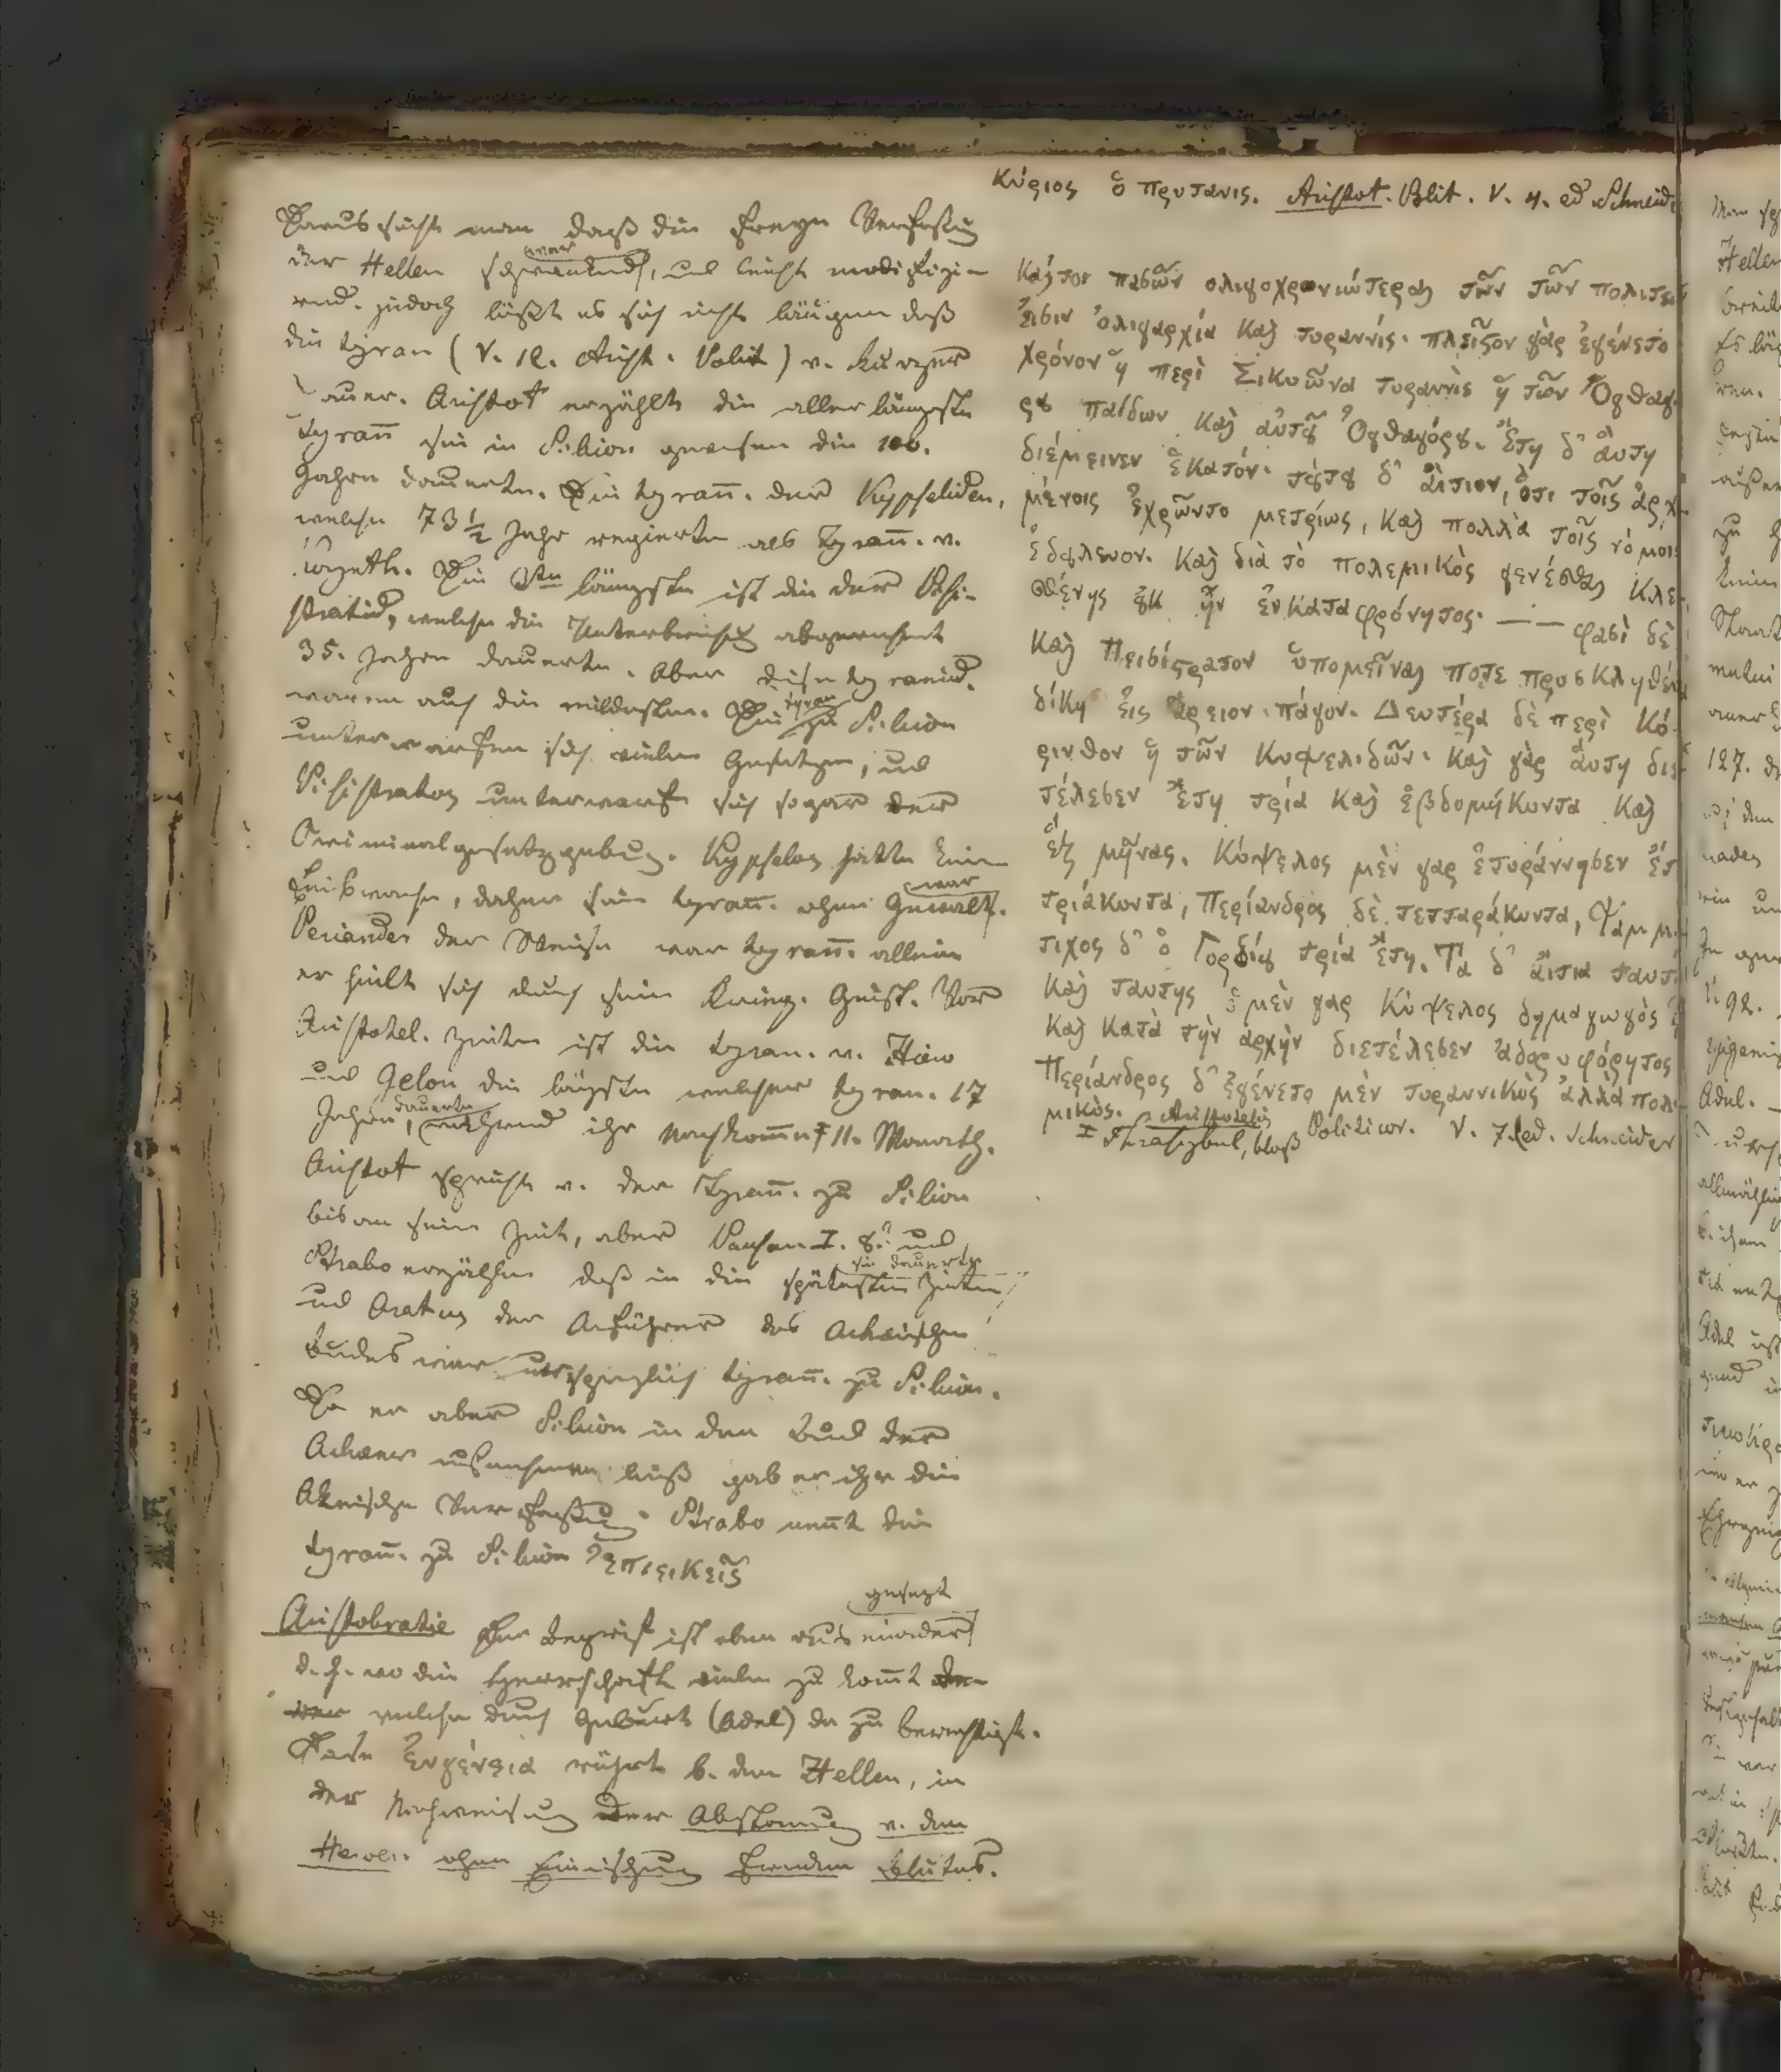 Κύριος ὁ πρυτανις. Aristot. Polit. V. 4. ed Schneid
Daraus sieht man daß die freye Verfaßung
der Hellen schwankend war, und leicht modifizi-
rend. jedoch läßt es sich nicht läugnen daß
die tyran (V. 12. Arist. Polit) v. kurzer
Dauer. Aristot erzählt die aller längste
tyrañ sei in Sikion gewesen die 100.
Jahre dauerte. Die tyrañ. der Kypseliden,
welche 73 1/2 Jahr regierte als Tyrañ. v.
Korynth. Die 3te längste ist die der Pisi-
stratid, welche die Unterbrechg abgerechnet
35. Jahre dauerte. Aber diese tyranid.
waren auch die mildesten. Die tyran zu Sikion
unterwarfen sich vielen Gesetzen, und
Pisistratos unterwarf sich sogar der
Criminalgesetzgebung. Kypselos hatte keine
Leibwache, daher sein tyrañ. ohne Gewalt war.
Periander der Weise war tyrañ. allein
er hielt sich durch sein Krieg. Geist. Vor
Aristotel. Zeiten ist die tyran. v. Hiero
und Gelon die längste welcher tyran. 17
Jahre, dauerte während ihr Nachkomme ‡ 11. Monath.
Aristot spricht v. der Tyrañ. zu Sikion
bis an seine Zeit, aber Pausan I. 8. und
Strabo erzählen daß in die spätesten Zeiten sie dauerte
und Aratus der Anführer des Achäischen
Bundes war ursprünglich tyrañ. zu Sikion.
Da er aber Sikion in den Bund der
Achäer aufnehmen ließ gab er ihr die
Verfaßung. Strabo neñt die
tyrañ. zu Sikion ἐπιεικεῖς
Aristokratie Der Begriff ist oben auseinander gesezt
d. h. wo die Herrschaft vielen zu kom̄t
welche durch Geburt (Adel) da zu berechtigt.
Diese ἐυγένεια rührt b. den Hellen, in
der Nachweisung der Abstam̄ung v. den
Heroen ohne Einmischung fremden Blutes.
Καίτοι πασῶν ολιγοχρονιώτεραι τῶν τῶν πολιτει
ἐισιν ὀλιγαρχία καὶ τυραννίς. πλεῖςον γὰρ ἐγένετο
χρόνον ἡ περὶ Σικυῶνα τυραννὶς ἡ τῶν Ὀρθαγ
ρȣ παίδων καὶ ἀυτȣ Ὀρθαγόρȣ. Ἔτη δ' ἁυτη
διέμεινεν ἑκατόν. τȣτȣ δ' ἄιτιον, ὅτι τοῖς ἀρχ
μένοις ἐχρῶντο μετρίως, καὶ πολλὰ τοῖς νόμοι
ἐδȣλευον. Καὶ διὰ τὸ πολεμικὸς γενέσθαι Κλε-
σθένης ȣκ ἦν ἐυκαταφρόνητος. — — φασὶ δὲ
καὶ Πεισίςρατον ὑπομεῖναι ποτε προσκληθέν
δίκη ἐις Ἄρειον πάγον. Δευτέρα δὲ περὶ Κό-
ρινθον ἡ τῶν Κυψελιδῶν. καὶ γὰρ ἁυτη διε
τέλεσεν ἔτη τρία καὶ ἑβδομήκοντα καὶ
ἓξ μῆνας. Κύψελος μὲν γαρ ἐτυράννησεν ἔτ
τριάκοντα, Περίανδρος δὲ τετταράκοντα, Ψάμμι
τιχος δ' ὁ Γορδίȣ τρία ἔτη. Τα δ' ἄιτια ταυτ
καὶ ταυτης ὁ μὲν γαρ Κύψελος δημαγωγὸς
καὶ κατὰ τὴν ἀρχὴν διετέλεσεν ἀδορυφόρητος
Περίανδρος δ' ἐγένετο μὲν τυραννικὸς ἀλλὰ πολ
μικὸς. Aristotelis Politicor. V. 7. ed. Schneider
‡ Thrasybul, bloß